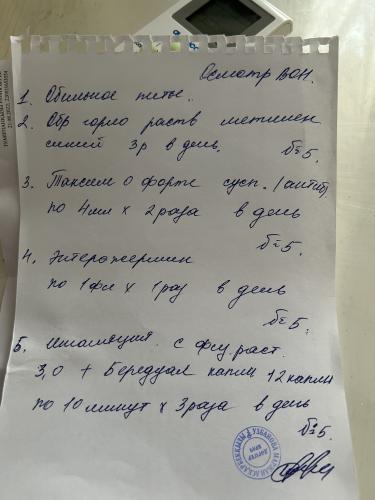 Осмотр ВОП.
1. Обильное питье..
2. Обр горло раств метилен
синий 3р в день.
№5.
3. Таксим О форте сусп. (антиб)
по 4мл х 2раза в день
№5.
4. Энтерожермин
по 1фл х 1раз в день
№5.
5. Ингаляция с физ.раст.
3,0 + Беродуал капли 12капли
по 10минут х 3раза в день
№5.